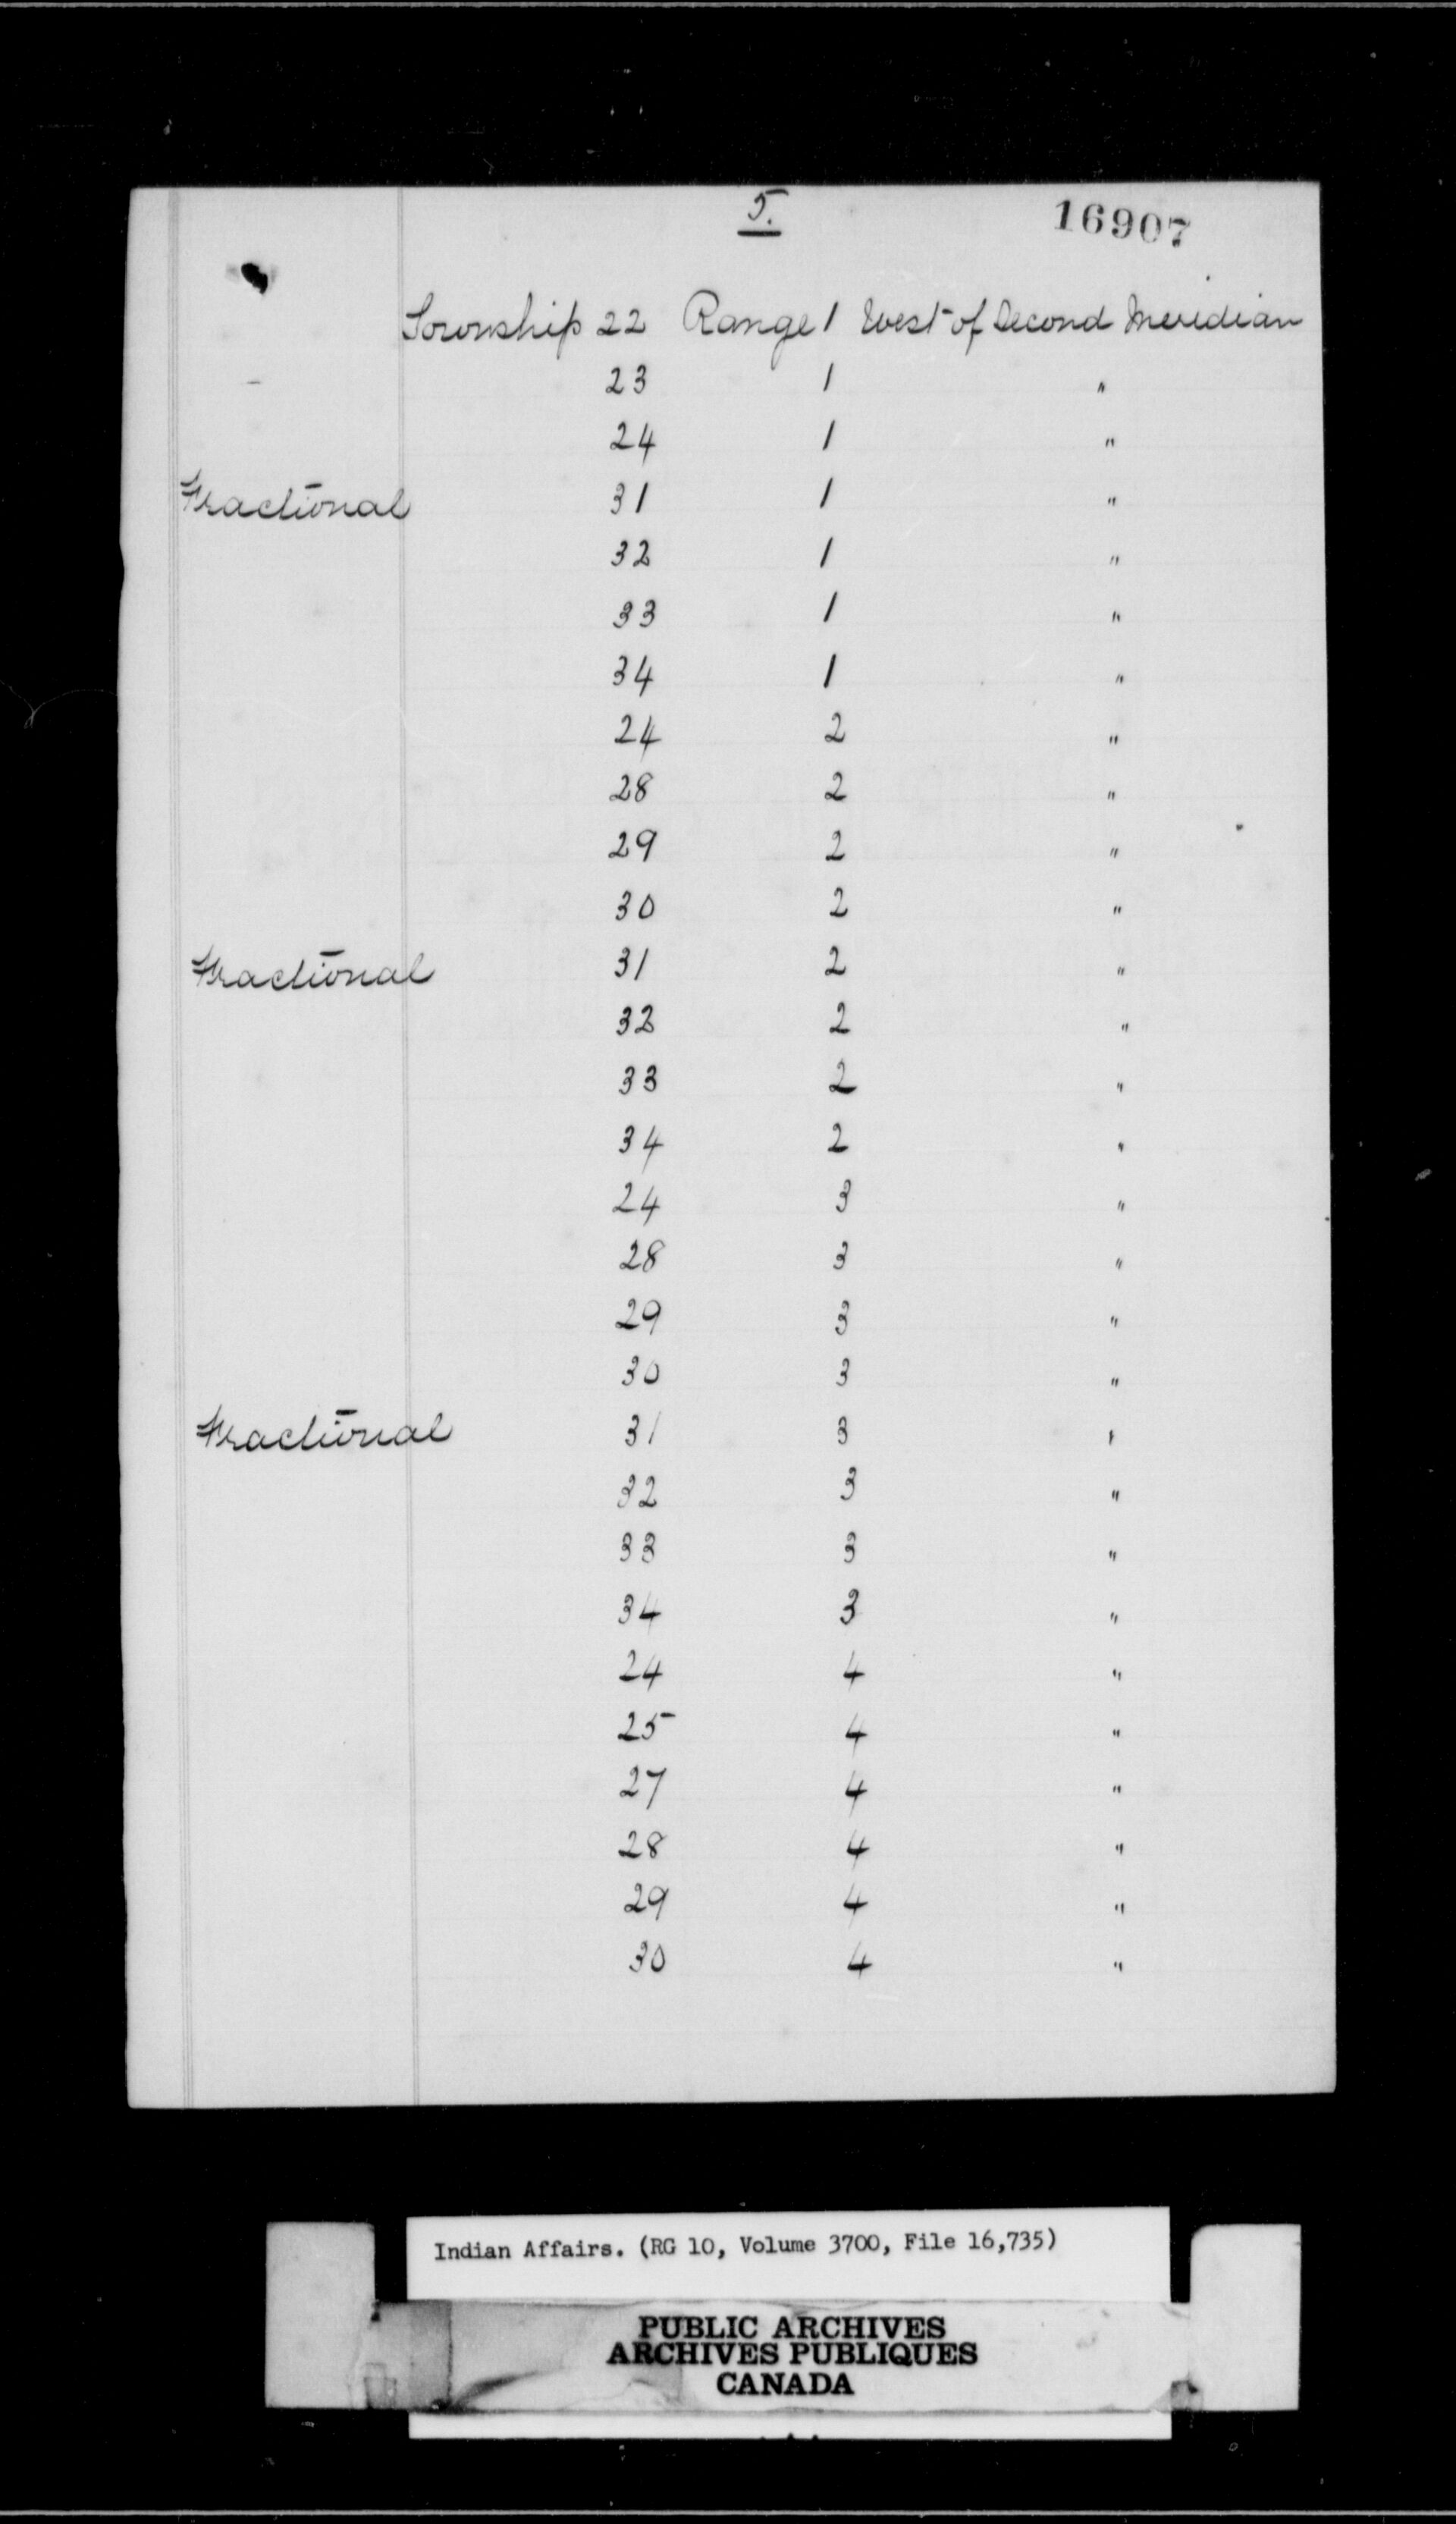 5.
16907
Township 22 Range 1 West of Second Meridian
23 1 "
24 1 "
Fractional 31 1 "
32 1 "
33 1 "
34 1 "
24 2 "
28 2 "
29 2 "
30 2 "
Fractional 31 2 "
32 2 "
33 2 "
34 2 "
24 3 "
28 3 "
29 3 "
30 3 "
Fractional 31 3 "
32 3 "
33 3 "
34 3 "
24 4 "
25 4 "
27 4 "
28 4 "
29 4 "
30 4 "
Indian Affairs. (RG 10, Volume 3700, File 16,735)
PUBLIC ARCHIVES
ARCHIVES PUBLIQUES
CANADA